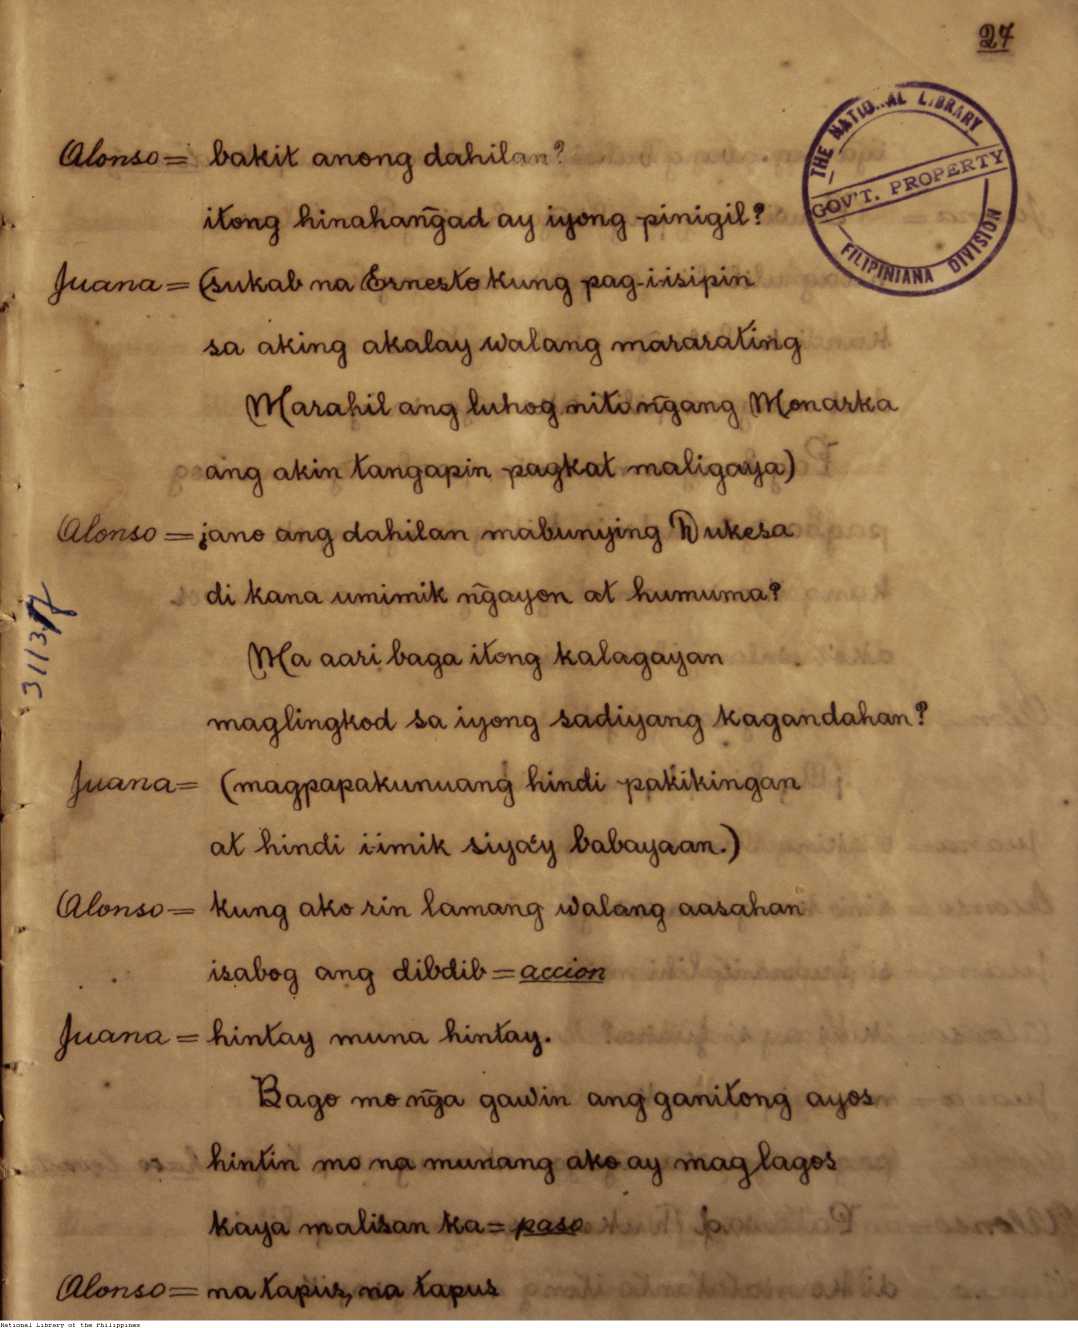 27
THE NATIONAL LIBRARY
GOV'T. PROPERTY
FILIPINIANA DIVISION
Alonso = bakit anong dahilan?
itong hinahang̃ad ay iyong pinigil?
Juana = (sukab na Ernesto kung pag-i-isipin
sa aking akalay walang mararating
Marahil ang luhog nito ng̃ang Monarka
ang akin tangapin pagkat maligaya)
Alonso = ¿ano ang dahilan mabunying Dukesa
di kana umimik ng̃ayon at humuma?
Ma aari baga itong kalagayan
maglingkod sa iyong sadiyang kagandahan?
Juana = (magpapakunuang hindi pakikingan
at hindi i-imik siya'y babayaan.)
Alonso = kung ako rin lamang walang aasahan
isabog ang dibdib = accion
Juana = hintay muna hintay.
Bago mo ng̃a gawin ang ganitong ayos
hintin mo na munang ako ay mag lagos
kaya malisan ka = paso
Alonso = na tapus, na tapus
3113
National Library of the Philippines